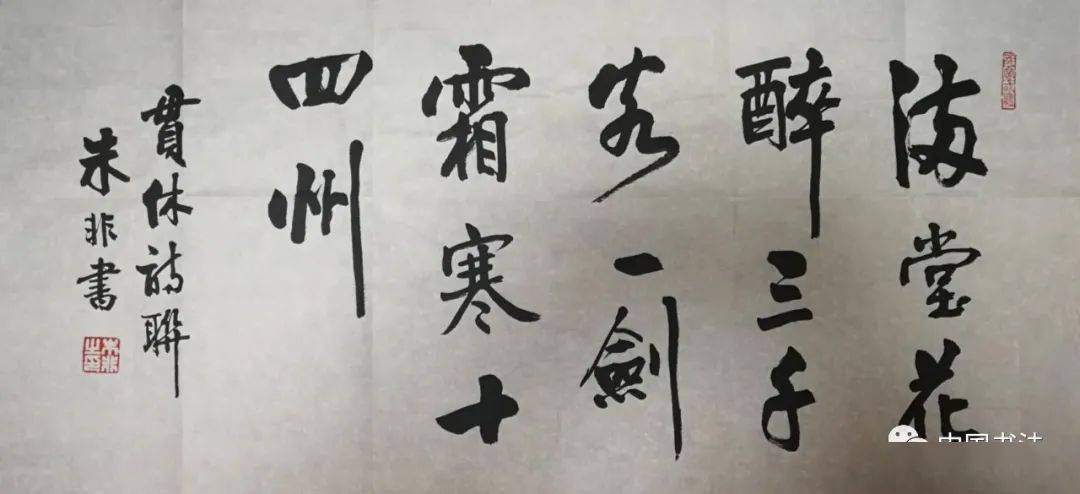 满堂花
醉三千
客一劍
霜寒十
四州
貫休詩聯
朱非書
朱非之印
中国书法